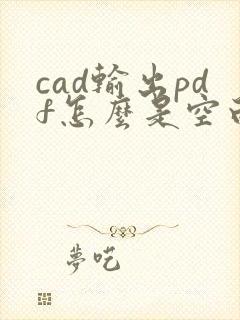 cad輸出pd
f怎麼是空
夢吃